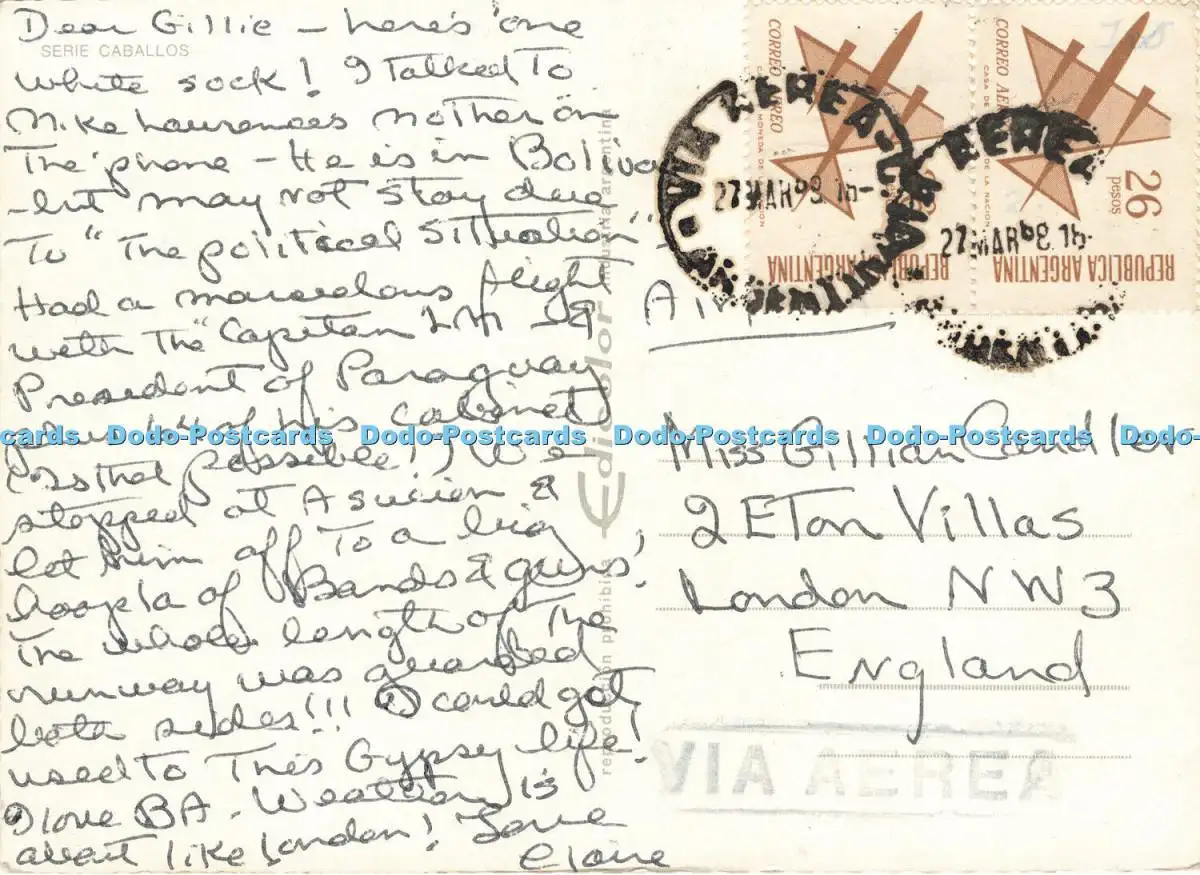 Dear Gillie - here's one
SERIE CABALLOS
white sock! I talked to
Mike Laurences mother on
the 'phone - He is in Bolivia
- but may not stay due
To "the political situation"
Had a marvelous flight
with the "Capitan &
President of Paraguay
plus of his cabinet
possible!) We
stopped at Asucion &
let him off To a big
hoopla of Bands & guns,
The whole length of the
runway was guarded
both sides!!! I could get
used to This Gypsy life!
I love BA. Weather is
about like London! Love
Elaine
Edicolor industria argentina
reproduccion prohibida
CORREO AEREO
CASA DE MONEDA DE LA NACION
REPUBLICA ARGENTINA
CORREO AEREO
CASA DE MONEDA DE LA NACION
26
pesos
REPUBLICA ARGENTINA
VIA AEREA
27 MAR 68 16-
VIA AEREA
27 MAR 68 16-
Miss Gillian Candler
2 ETon Villas
London NW3
England
VIA AEREA
Dodo-Postcards Dodo-Postcards Dodo-Postcards Dodo-Postcards